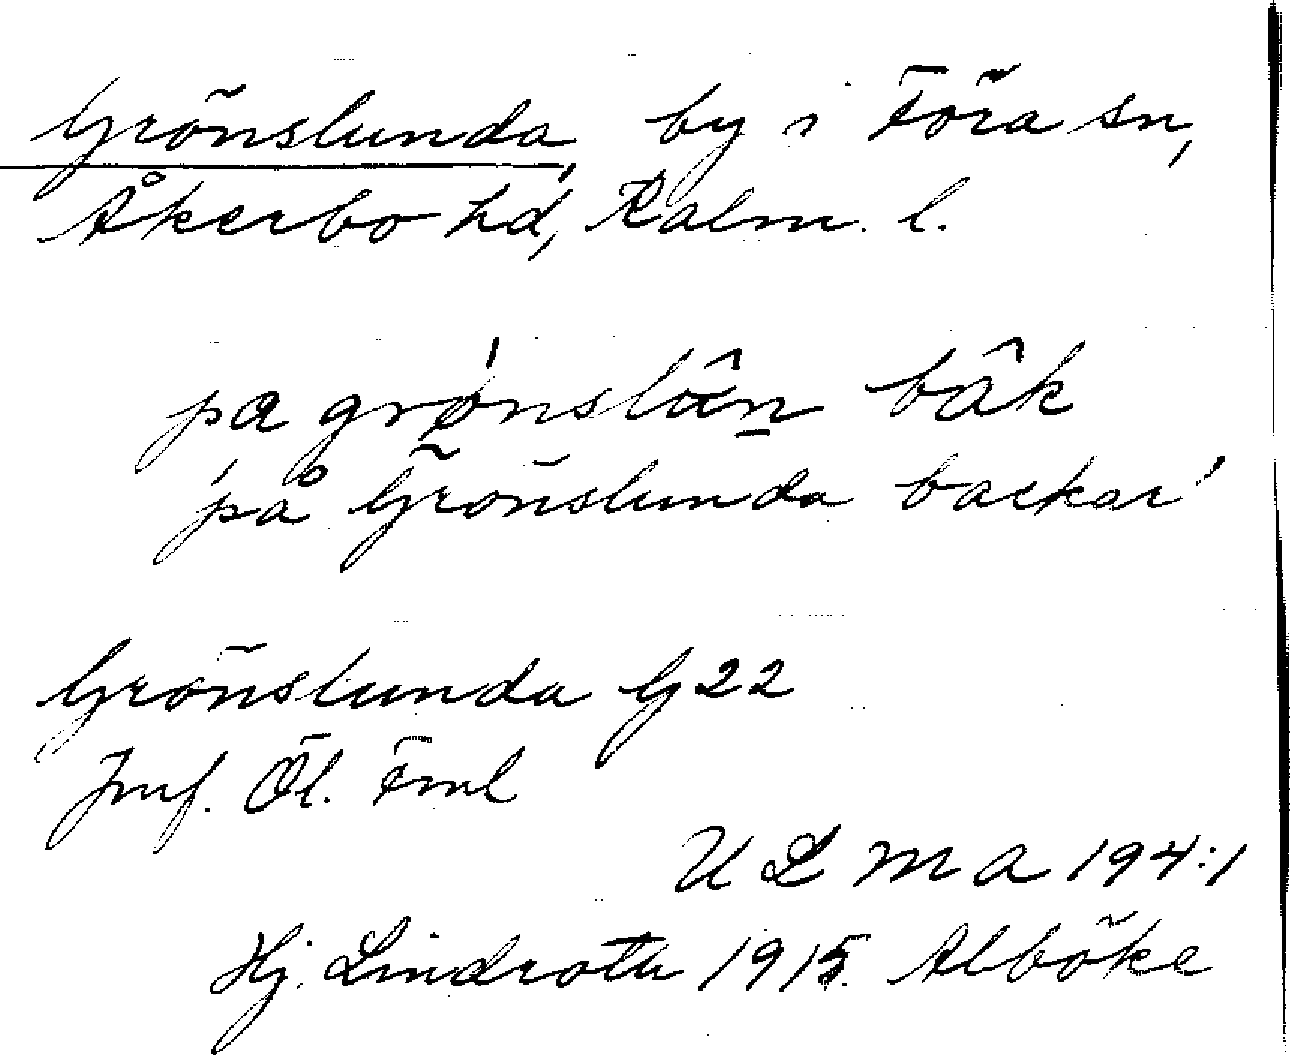 Grönslunda, by i Föra sn,
Åkerbo hd, Kalm. l.
pa grønslân bâk
'på Grönslunda backar'
Grönslunda G 22
Jmf. Öl. Fml
ULMA 194:1
Hj. Lindroth 1915. Alböke